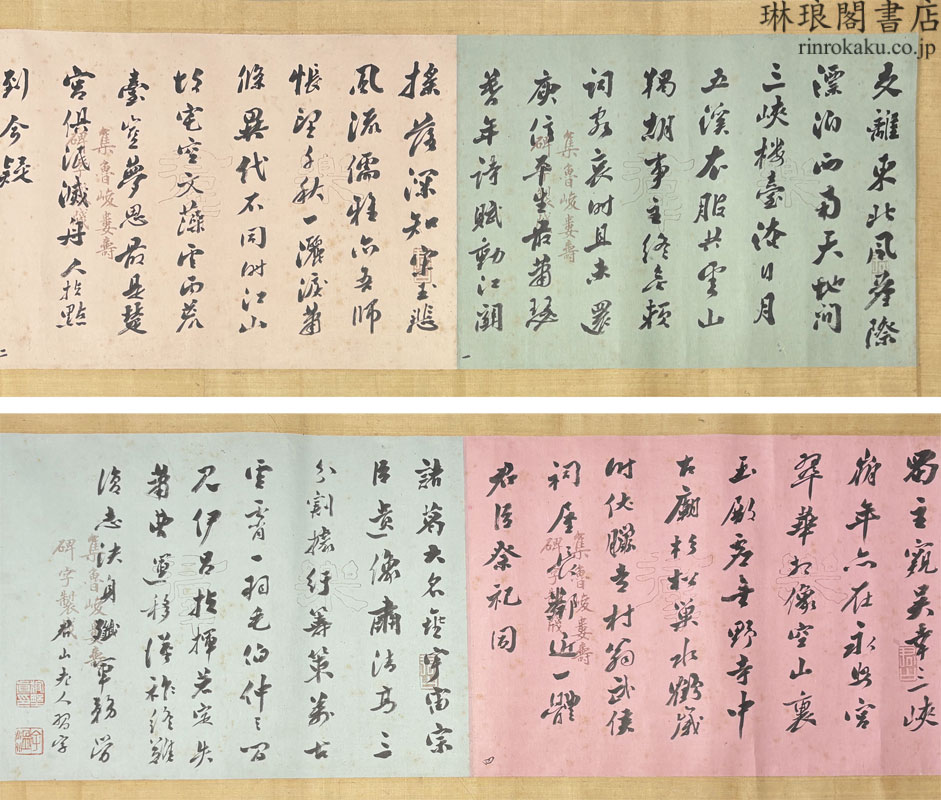 琳琅閣書店
rinrokaku.co.jp
支離東北風塵際
漂泊西南天地間
三峽樓臺淹日月
五溪衣服共雲山
羯胡事主終無賴
詞客哀時且未還
庾信平生最蕭瑟
暮年詩賦動江關
集魯峻婁壽
一
搖落深知宋玉悲
風流儒雅亦吾師
悵望千秋一灑淚蕭
條異代不同時江山
故宅空文藻雲雨荒
臺豈夢思最是楚
宮俱泯滅舟人指點
到今疑
集魯峻婁壽
二
蜀主窺吳幸三峽
崩年亦在永安宮
翠華想像空山裏
玉殿虛無野寺中
古廟杉松巢水鶴歲
時伏臘走村翁武侯
祠屋長鄰近一體
君臣祭祀同
集魯峻婁壽
四
諸葛大名垂宇宙宗
臣遺像肅清高三
分割據紆籌策萬古
雲霄一羽毛伯仲之間
見伊呂指揮若定失
蕭曹運移漢祚終難
復志決身殲軍務勞
集魯峻婁壽
碑字製牋
君山老人習字